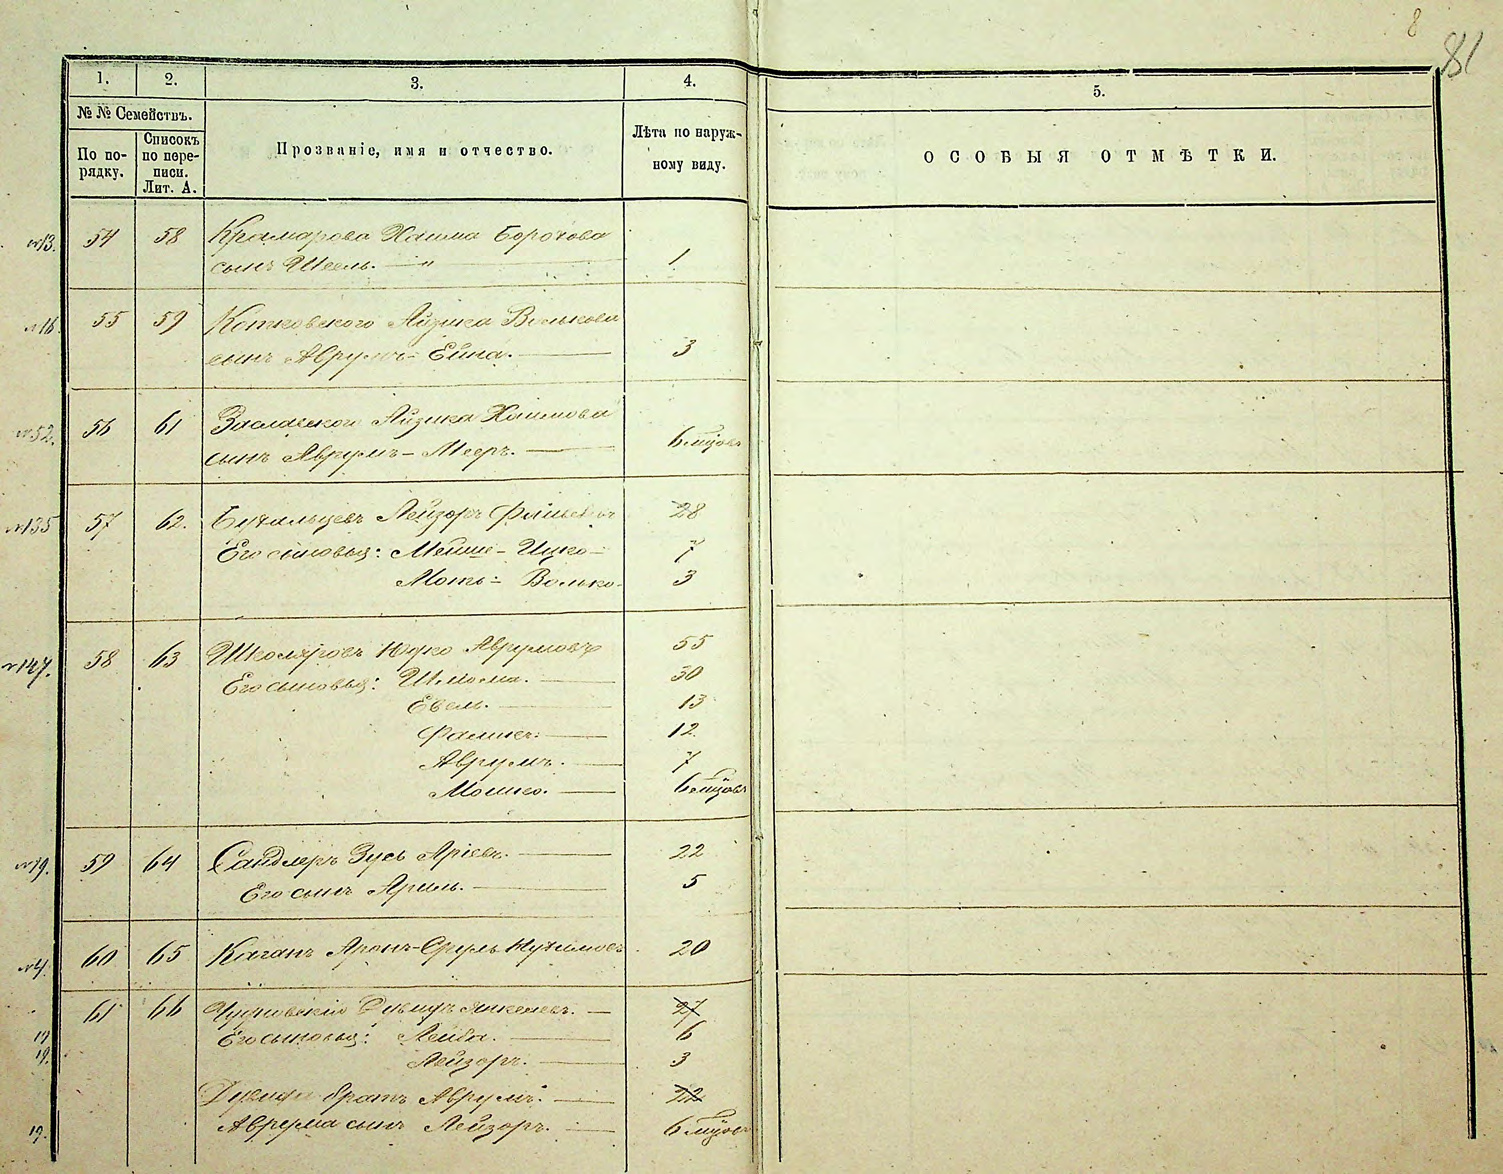 8
81
1. 2. 3. 4. 5.
№ № Семействъ.
По порядку.
Списокъ по переписи. Лит. А.
Прозваніе, имя и отчество.
Лѣта по наружному виду.
ОСОБЫЯ ОТМѢТКИ.
№13. 54 58 Крамарова Хаима Борохова
сынъ Шеель. — " 1
№16. 55 59 Котковского Айзика Волькова
сынъ Аврумъ-Ейна. — 3
№52. 56 61 Заславского Айзика Хаимова
сынъ Аврумъ-Мееръ. — 6 мцовъ
№135 57 62. Лейзоръ 28
Его сыновья: Мейше-Ицко- 7
Моть- Волько- 3
№147. 58 63 Школяровъ Юдко Аврумовъ 55
Его сыновья: Шлома. — 30
Евель. — 13
12
Аврумъ. — 7
Мошко. — 6 мцовъ
№19. 59 64 Сандлеръ Зусь Аріевъ. — 22
Его сынъ Ариль. — 5
№4. 60 65 Каганъ Аронъ-Сруль Нухимовъ 20
61 66 Чудновскій Янкелевъ. — 27
19 Его сыновья: Лейба. — 6
19. Лейзоръ. — 3
братъ Аврумъ. — 22
19. Аврума сынъ Лейзоръ. — 6 мцовъ